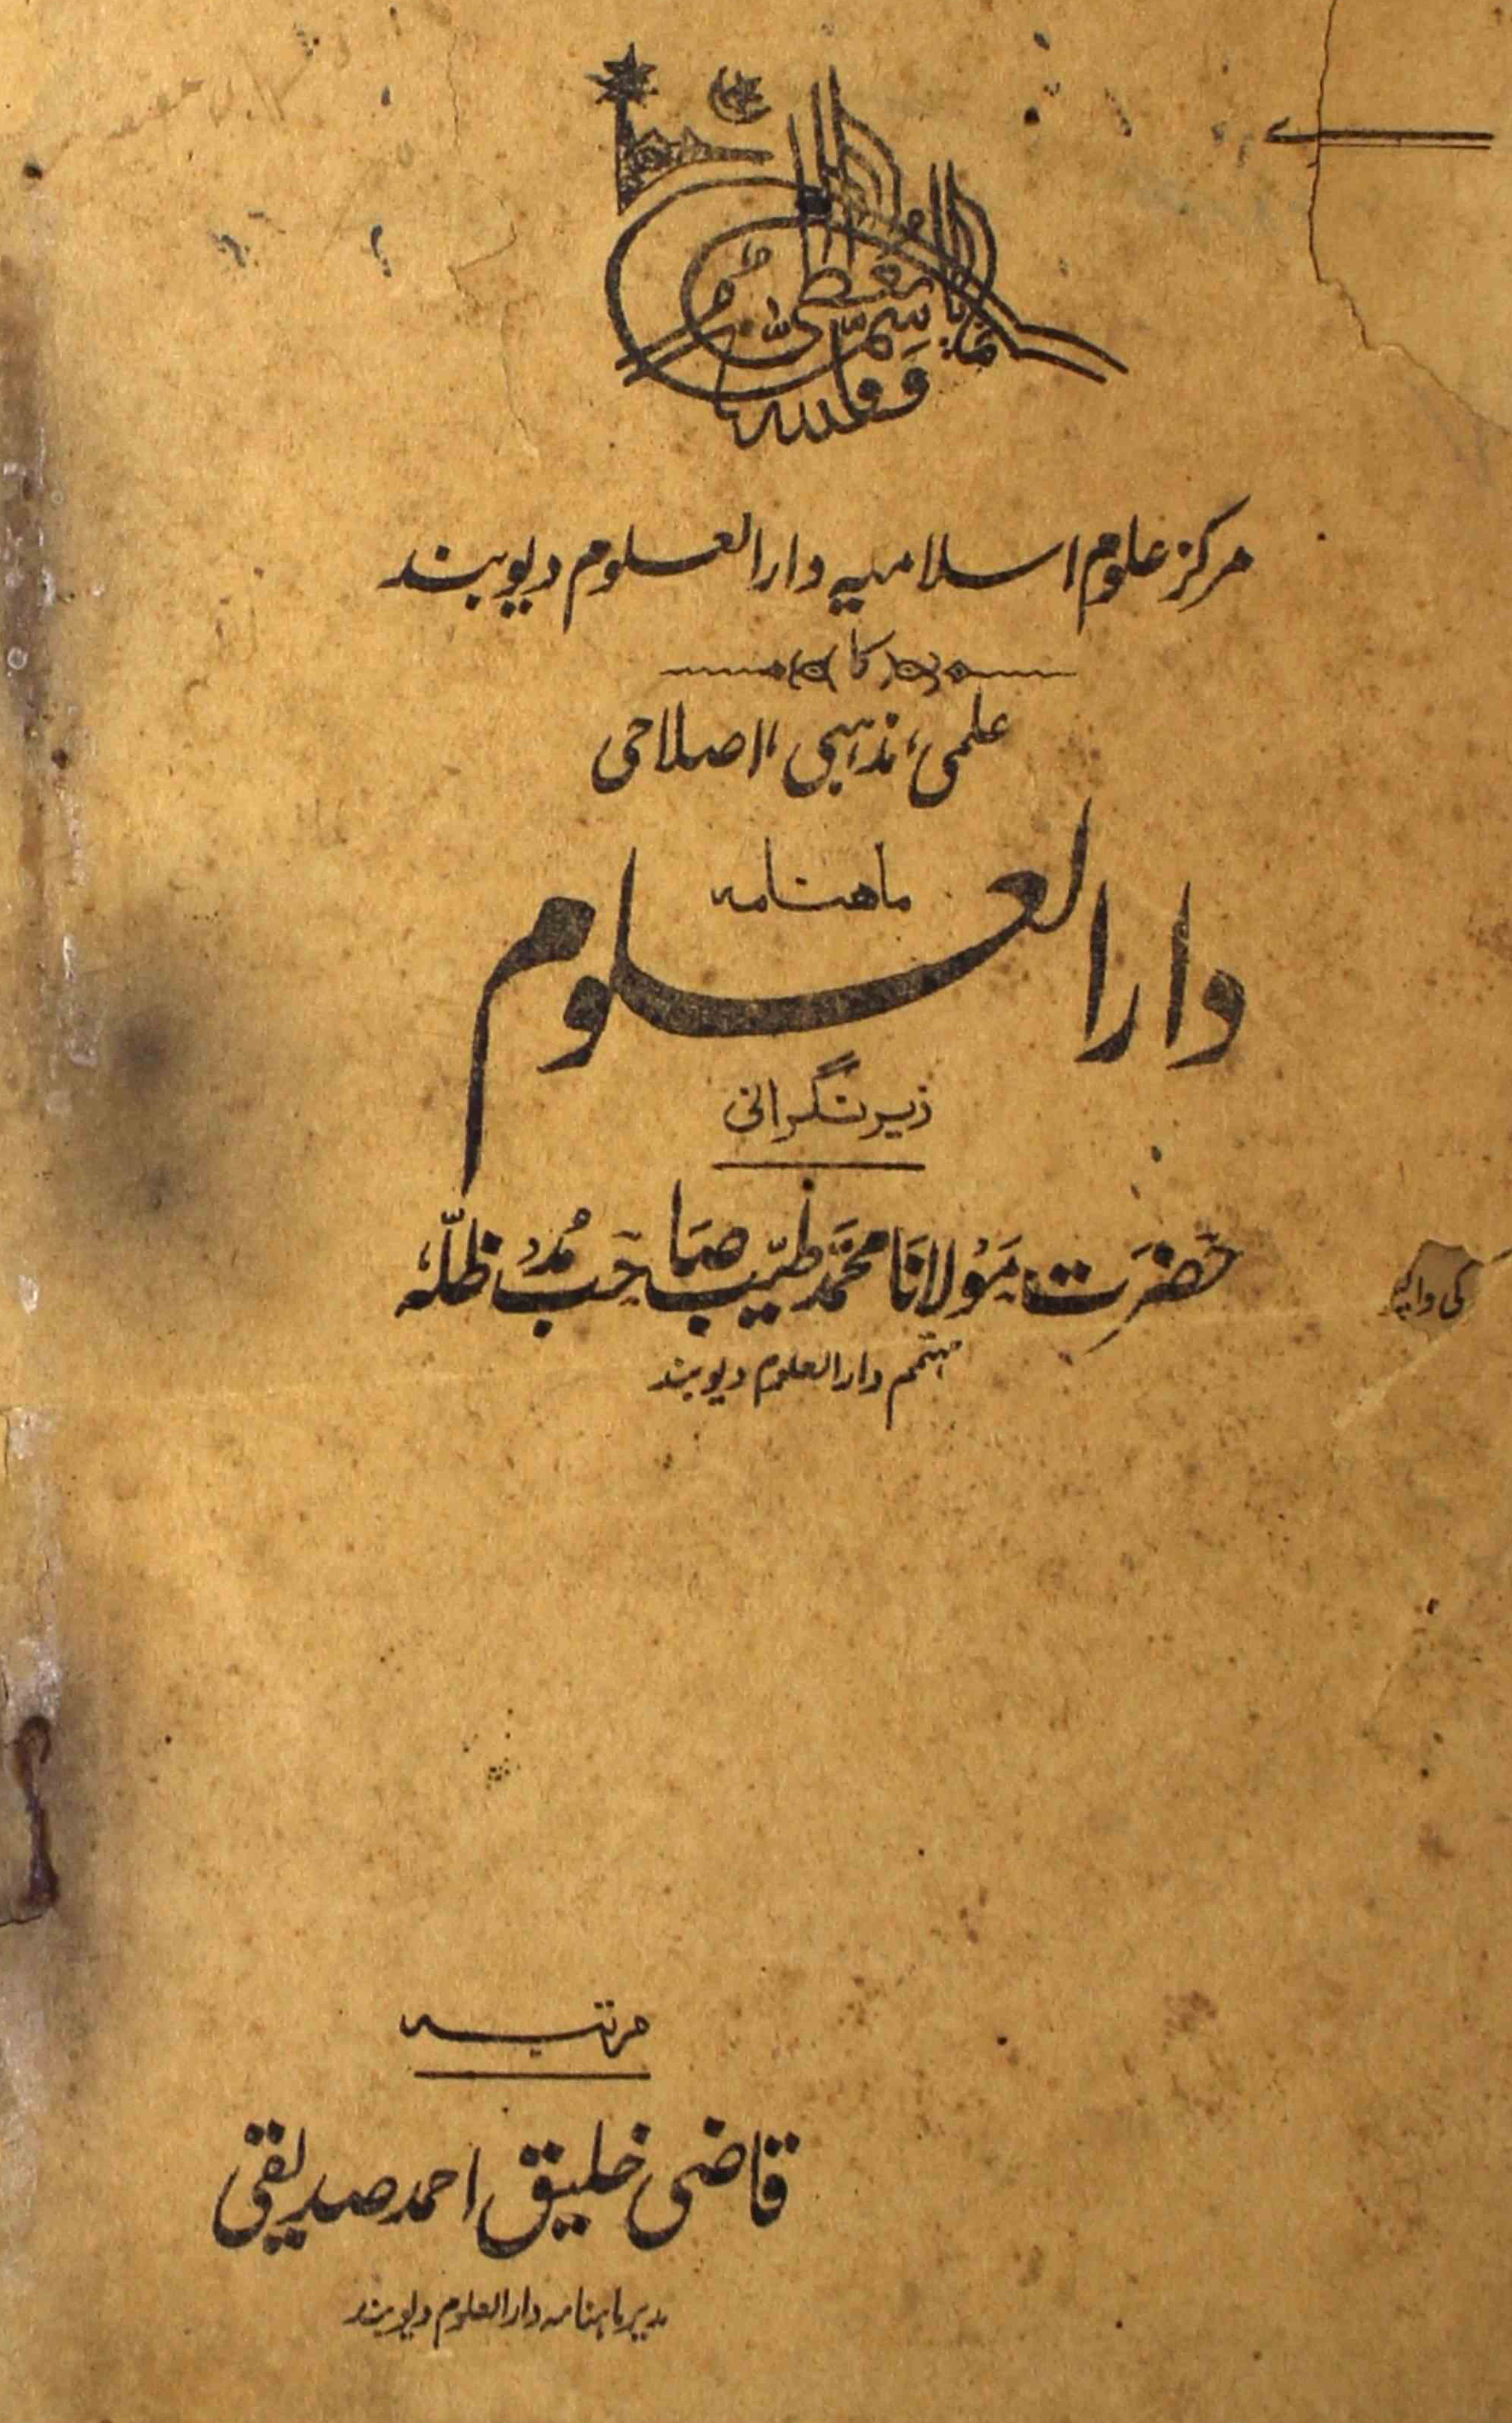 انما انا قاسم واللہ معطی
مرکز علوم اسلامیہ دارالعلوم دیوبند
کا
علمی، مذہبی، اصلاحی
ماھنامہ
دارالعلوم
زیر نگرانی
حضرت مولانا محمد طیب صاحب مدظلہ
مہتمم دارالعلوم دیوبند
مرتبہ
قاضی خلیق احمد صدیقی
مدیر ماہنامہ دارالعلوم دیوبند